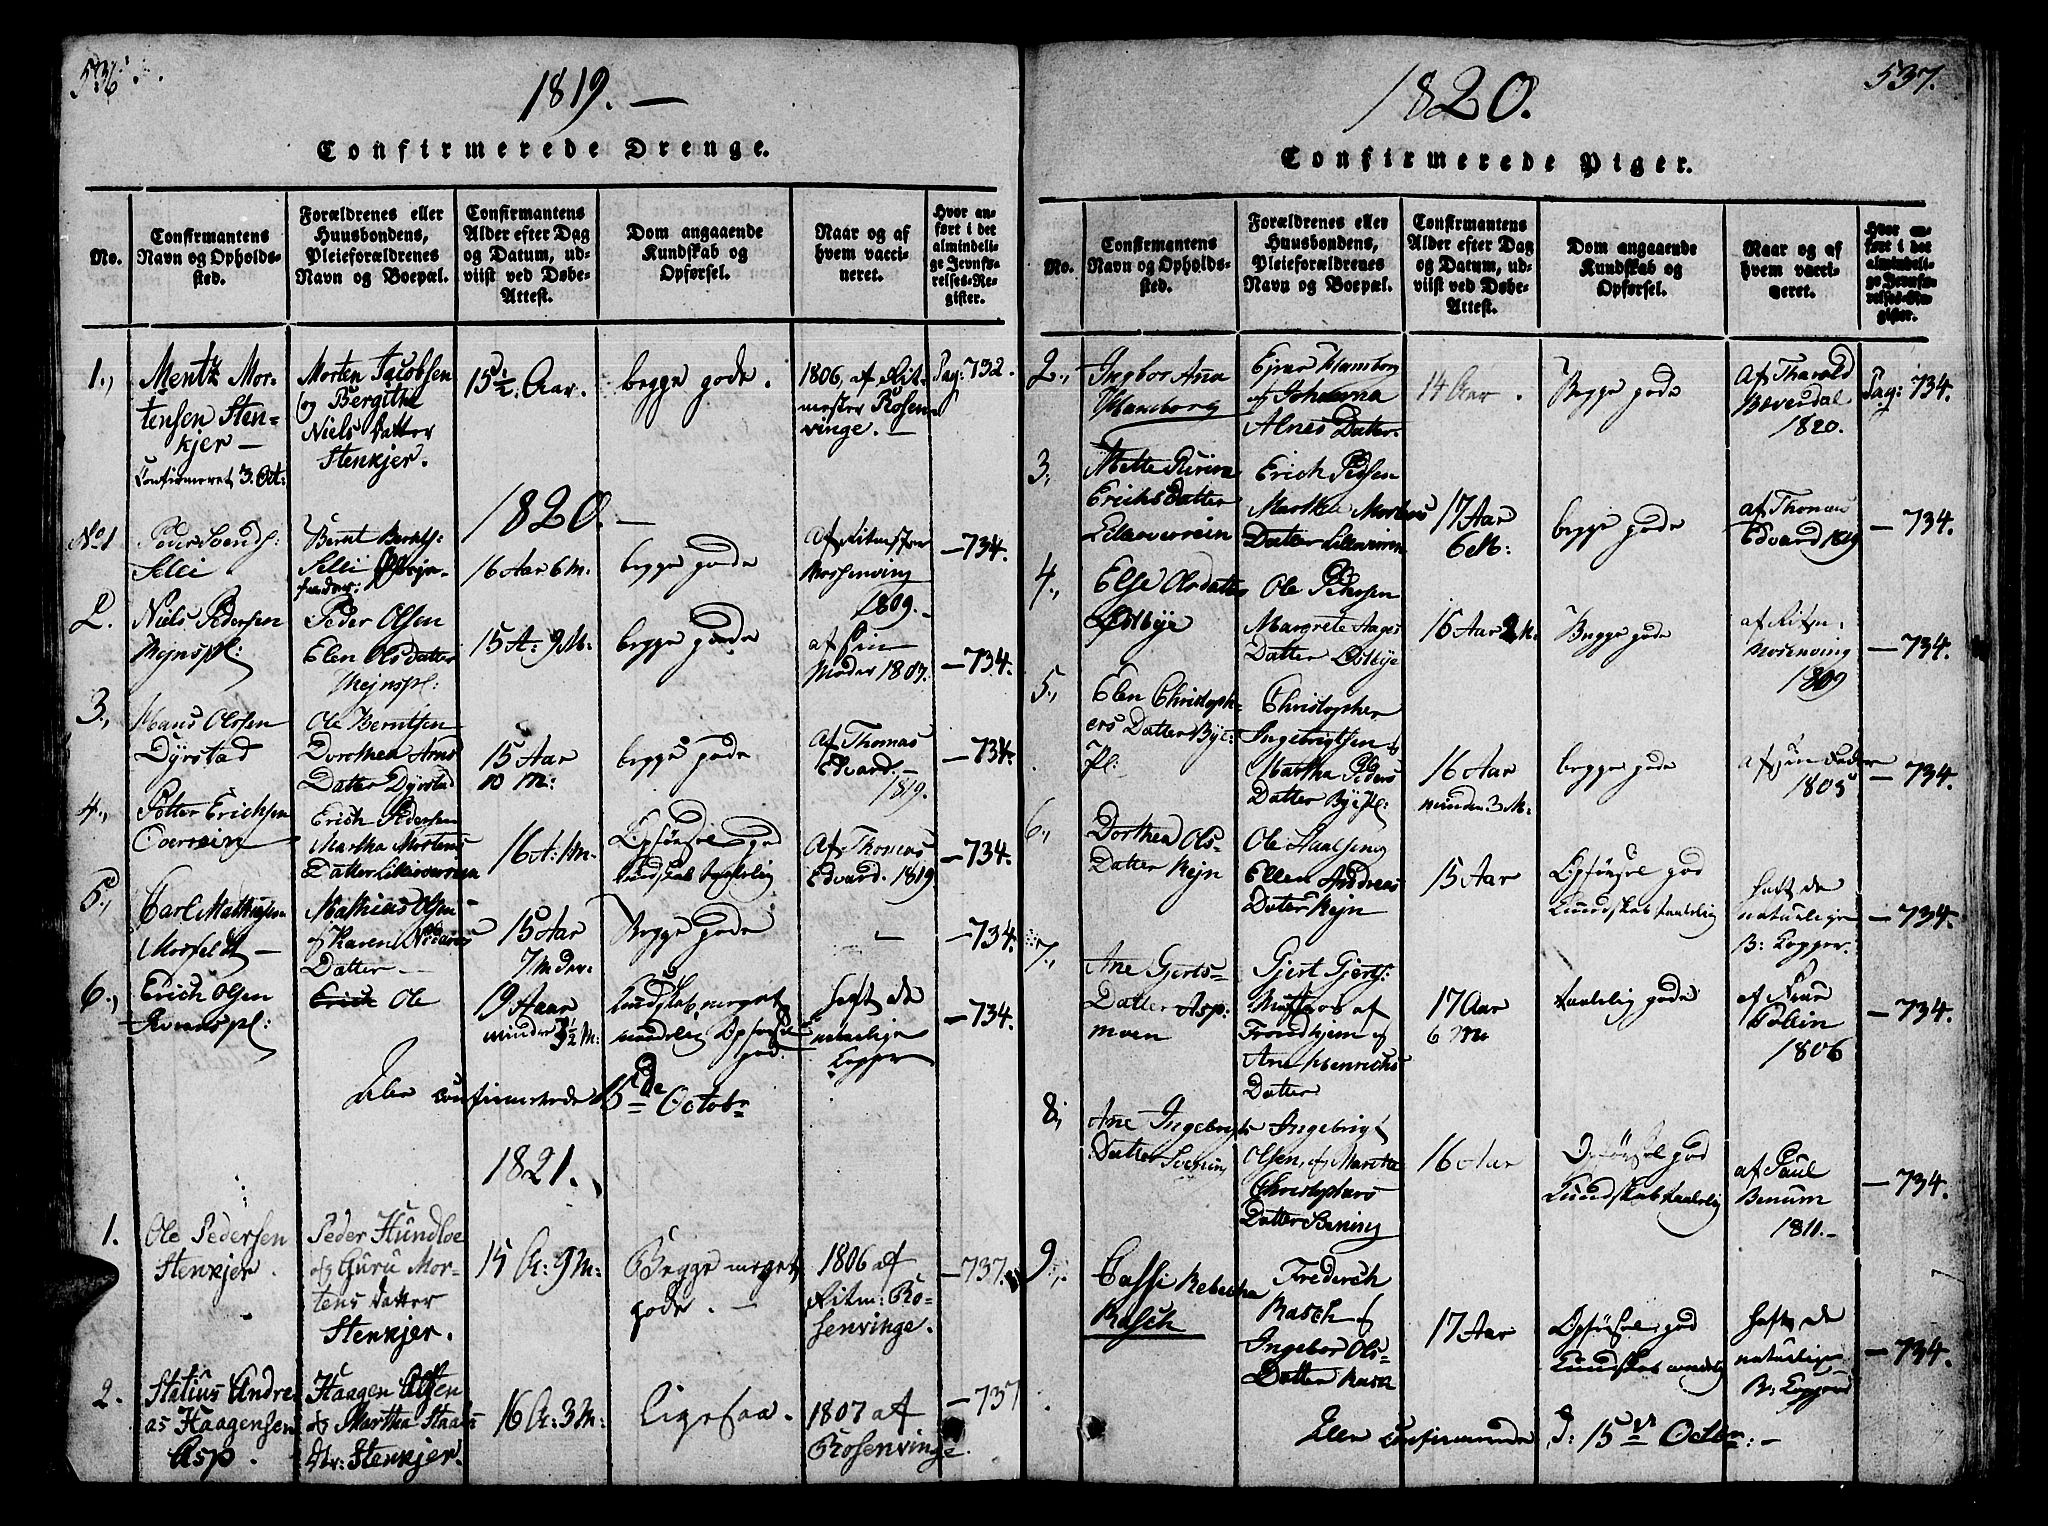 536.
1819. —
Confirmerede Drenge.
No.
Confirmantens
Navn og Opholds-
sted.
Forældrenes eller
Huusbondens,
Pleieforældrenes
Navn og Boepæl.
Confirmantens
Alder efter Dag
og Datum, ud-
viist ved Døbe-
Attest.
Dom angaaende
Kundskab og
Opførsel.
Naar og af
hvem vacci-
neret.
Hvor an-
ført i det
almindeli-
ge Jevnfø-
relses-Re-
gister.
1.,
Mentz Mor-
tensen Sten-
kjer —
Confirmeret 3. Oct:
Morten Jacobsen
og Bergitha
Niels Datter
Stenkjer.
15½. Aar.
begge gode.
1806, af Rit-
mester Rosen-
vinge. —
Pag: 732.
1820. —
No 1
Peder
Selli
Bernt Bernts:
Selli
16 Aar 6 M.
begge gode
af Ritmster
Rossenving
1809. —
— 734.
2.
Niels Pedersen
Hejnspl:
Peder Olsen
Elen Olsdatter
Hejnspl:
15 A: 9 M:
begge gode
af Sin
Moder 1807.
— 734.
3.,
Hans Olssen
Dyrstad
Ole Berntsen
Dorothea Arns
Datter Dyrstad
15 Aar
10 M:
begge gode
af Thomas
Edvard. —
1819.
— 734.
4.,
Petter Erichsen
Overrein
Erich Pedersen
Martha Mortens
Datter
16 A: 1 M.
Opførsel god
kundskab taalelig
Af Thomas
Edvard. 1819
— 734.
5.,
Carl Mathiesen
Morsfeldt —
Mathias Olsen
og Karen Peders
Datter —
15 Aar
7 M der.
Begge gode
—
— 734.
6.,
Erich Olsen
Ole
19 Aaar
minder 3½ M:
Kundskab meget
maadelig Opførsel
god
haft de
naturlige
Kopper
— 734.
confirmerede 15de Octobr
1821.
1.
Ole Pedersen
Stenkjer.
Peder Hundloe
og Guru Mor-
tens Datter
Stenkjer.
15 A: 9 M:
Begge meget
gode. —
1806 af
Ritm: Ro-
senvinge.
— 737.
2.
Statius Andre
as Haagensen
Asp.
Haagen Olsen
og Martha Staals
Dtr: Stenkjer.
16 A: 3 M:
Ligesaa.
1807 af
Rosenvinge.
— 737
537.
1820.
Confirmerede Piger.
No.
Confirmantens
Navn og Opholds-
sted.
Forældrenes eller
Huusbondens,
Pleieforældrenes
Navn og Boepæl.
Confirmantens
Alder efter Dag
og Datum, ud-
viist ved Døbe-
Attest.
Dom angaaende
Kundskab og
Opførsel.
Naar og af
hvem vacci-
neret.
Hvor an-
ført i det
almindeli-
ge Jevnfø-
relses-Re-
gister.
2.,
Ingbor Ana
Hamborg
Ejnar Hamborg
og Johanna
Alnes Datter.
14 Aar.
Begge gode
Af Tharald
Bævendal
1820.
Pag: 734.
3.,
Mette
Erichs Datter
Lilleoverrein
Erich Pedsen
Martha Mortens
Datter
17 Aar
6 M:
begge gode
af Thomas
Edvard 1819
— 734.
4.,
Else Olsdatter
Østbye
Ole Petersen
Margrete Aages
Datter Østbye
16 Aar 2 M:
Begge gode
af Ritm:
Rosenving
1809
— 734.
5.,
Elen Christoph-
ers Datter Bye
Pl:
Christopher
Ingebrigtsen og
Martha Peders
Datter Byepl:
16 Aar
minder 3 M:
begge gode
af sin Fader
1805
— 734.
6.,
Dorthea Ols-
Datter Rejn
Ole
Ellen Andreas
Datter Rejn
15 Aar
Opførsel god
Kundskab taalelig
haft de
naturlige
B: Kopper.
— 734.
7.,
Ane Gjerts-
Datter Asp:
moen
Gjert Gjerts:
af
Trondhjem og
Ane Henrichs
Datter
17 Aar
6 M
taalelig gode
af
1806
— 734.
8.,
Ane Ingebrigts
Datter
Ingebrigt
Olsen, og Martha
Christophers
Datter
16 Aar
Opførsel god
Kundskab taalelig
af Paul
Benum
1811. —
— 734.
9.,
Cassi Rebecka
Rasch
Frederch
Rasch og
Ingebor Ols-
Datter Rasch
17 Aar
Opførsel god
Kundskab maadelig
haft de
naturlige
B: Kopper
— 734.
D: 15de Octbr: —